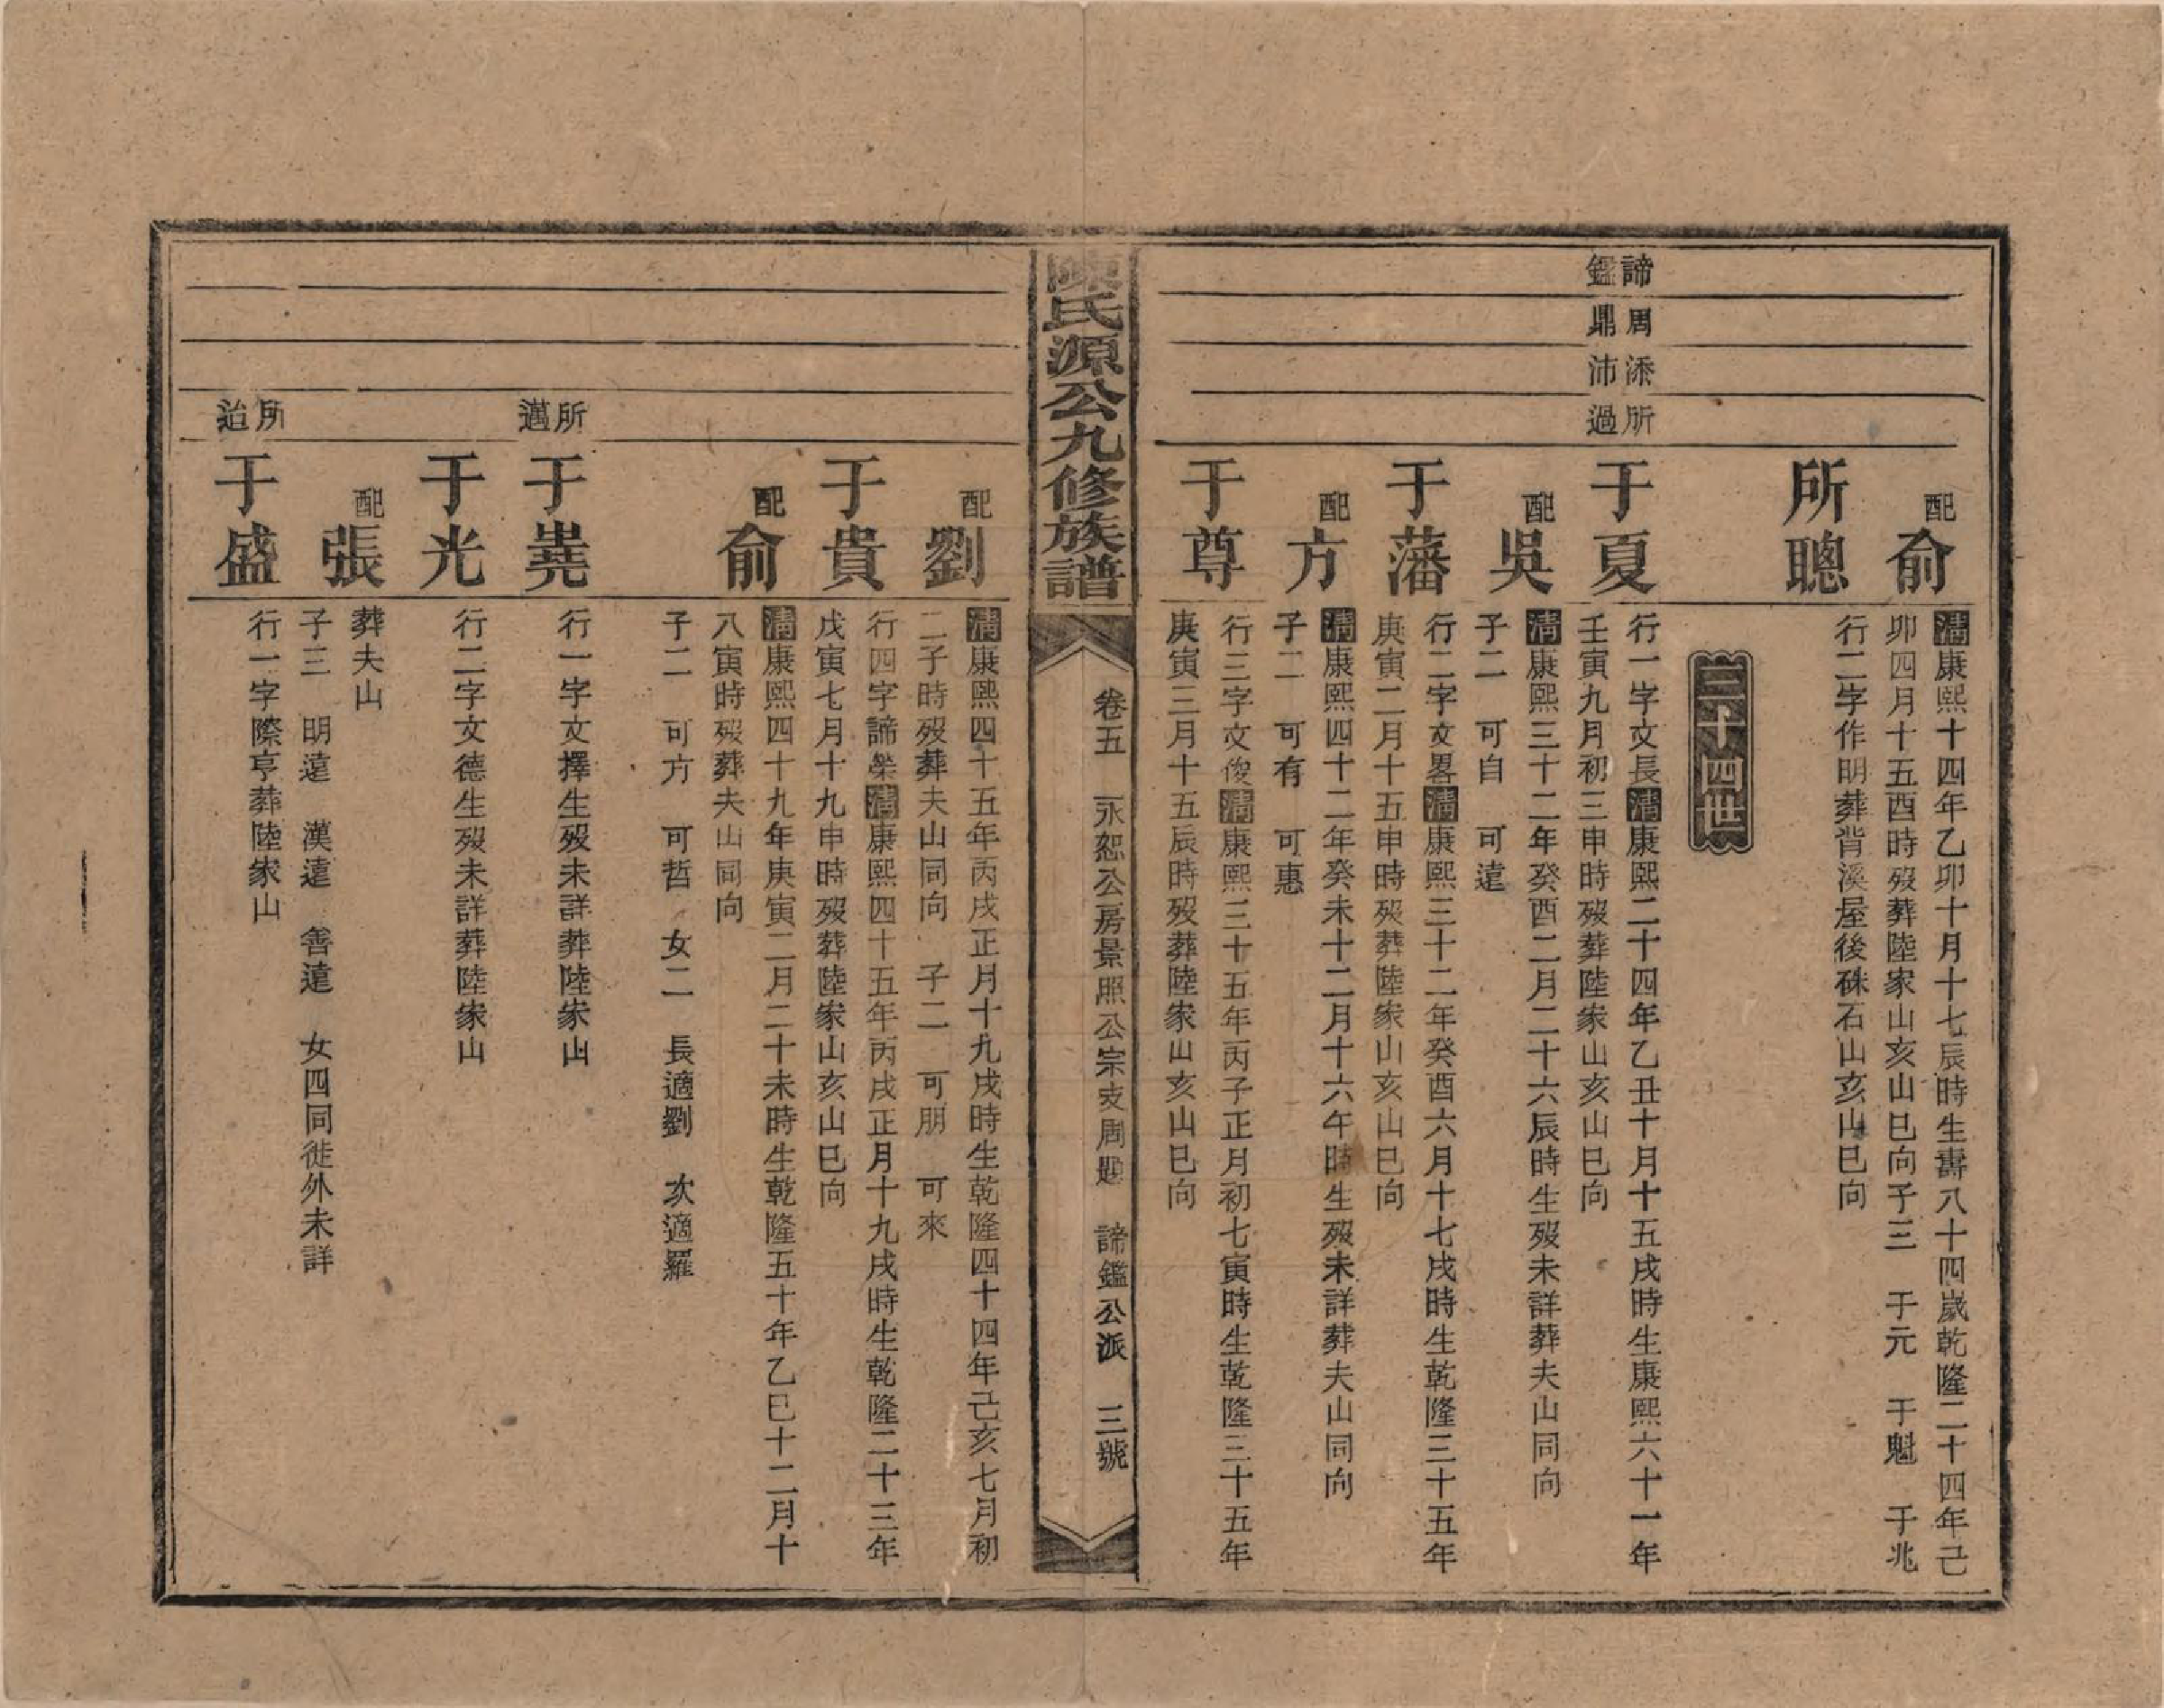 配俞
清康熙十四年乙卯十月十七辰時生壽八十四歲乾隆二十四年己
卯四月十五酉時歿葬陸家山亥山巳向子三　于元　于魁　于兆
所聰
行二字作明葬背溪屋後硃石山亥山巳向
三十四世
諦鑑
周鼎
添沛
所過
于夏
行一字文長清康熙二十四年乙丑十月十五戌時生康熙六十一年
壬寅九月初三申時歿葬陸家山亥山巳向
配吳
清康熙三十二年癸酉二月二十六辰時生歿未詳葬夫山同向
子二　可自　可遠
于藩
行二字文畧清康熙三十二年癸酉六月十七戌時生乾隆三十五年
庚寅二月十五申時歿葬陸家山亥山巳向
配方
清康熙四十二年癸未十二月十六午時生歿未詳葬夫山同向
子二　可有　可惠
于尊
行三字文俊清康熙三十五年丙子正月初七寅時生乾隆三十五年
庚寅三月十五辰時歿葬陸家山亥山巳向
陳氏源公九修族譜
卷五　永恕公房景照公宗支周鼎　諦鑑公派　三號
配劉
清康熙四十五年丙戌正月十九戌時生乾隆四十四年己亥七月初
二子時歿葬夫山同向　子二　可朋　可來
于貴
行四字諦榮清康熙四十五年丙戌正月十九戌時生乾隆二十三年
戊寅七月十九申時歿葬陸家山亥山巳向
配俞
清康熙四十九年庚寅二月二十未時生乾隆五十年乙巳十二月十
八寅時歿葬夫山同向
子二　可方　可哲　女二　長適劉　次適羅
所邁
于堯
行一字文擇生歿未詳葬陸家山
于光
行二字文德生歿未詳葬陸家山
配張
葬夫山
子三　明遠　漢遠　善遠　女四同徙外未詳
所治
于盛
行一字際亨葬陸家山